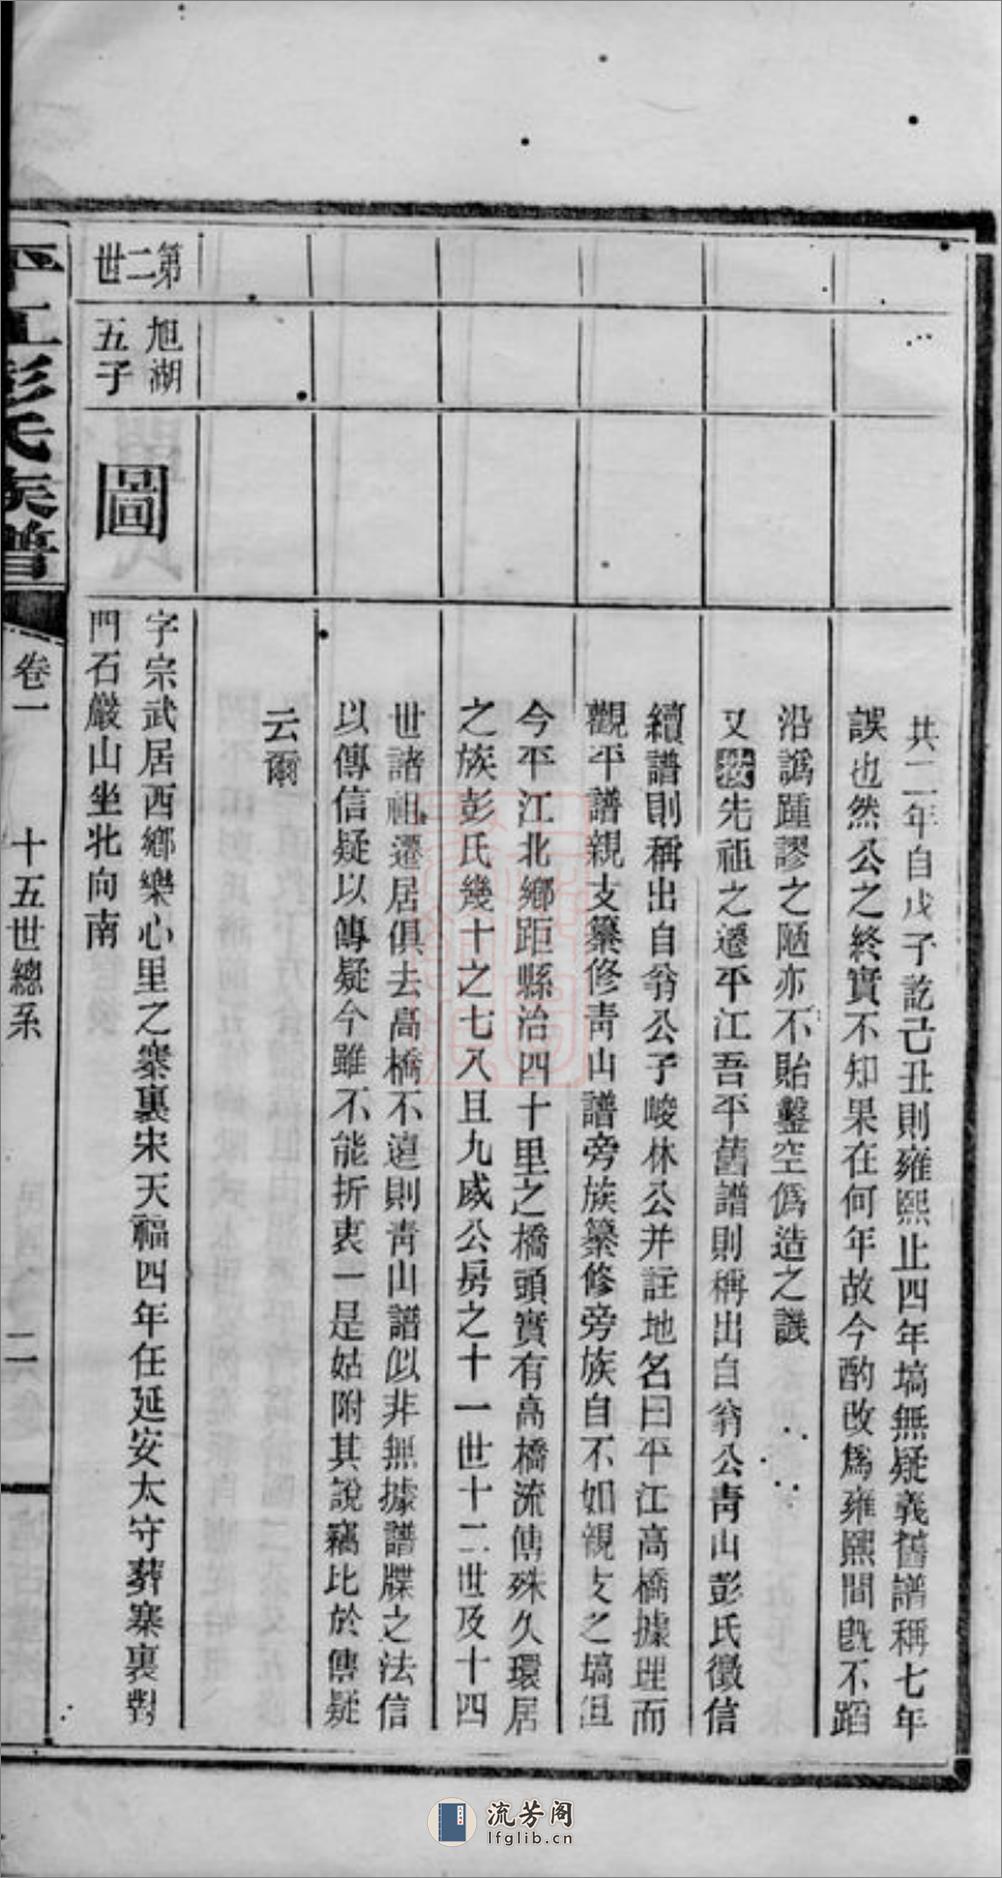 共二年自戊子訖己丑則雍熙止四年塙無疑義舊譜稱七年
誤也然公之終實不知果在何年故今酌改為雍熙間旣不蹈
沿譌踵謬之陋亦不貽鑿空僞造之譏
又按先祖之遷平江吾平舊譜則稱出自翁公靑山彭氏徵信
續譜則稱出自翁公子峻林公幷註地名曰平江高橋據理而
觀平譜親支纂修靑山譜旁族纂修旁族自不如親支之塙但
今平江北鄉距縣治四十里之橋頭實有高橋流傳殊久環居
之族彭氏幾十之七八且九成公房之十一世十二世及十四
世諸祖遷居俱去高橋不遠則靑山譜似非無據譜牒之法信
以傳信疑以傳疑今雖不能折衷一是姑附其說竊比於傳疑
云爾
第二世
旭湖
五子
圖
字宗武居西鄉樂心里之寨裏宋天福四年任延安太守葬寨裏對
門石嚴山坐北向南
平江彭氏族譜
卷一
十五世總系
二
流芳阁
lfglib.cn